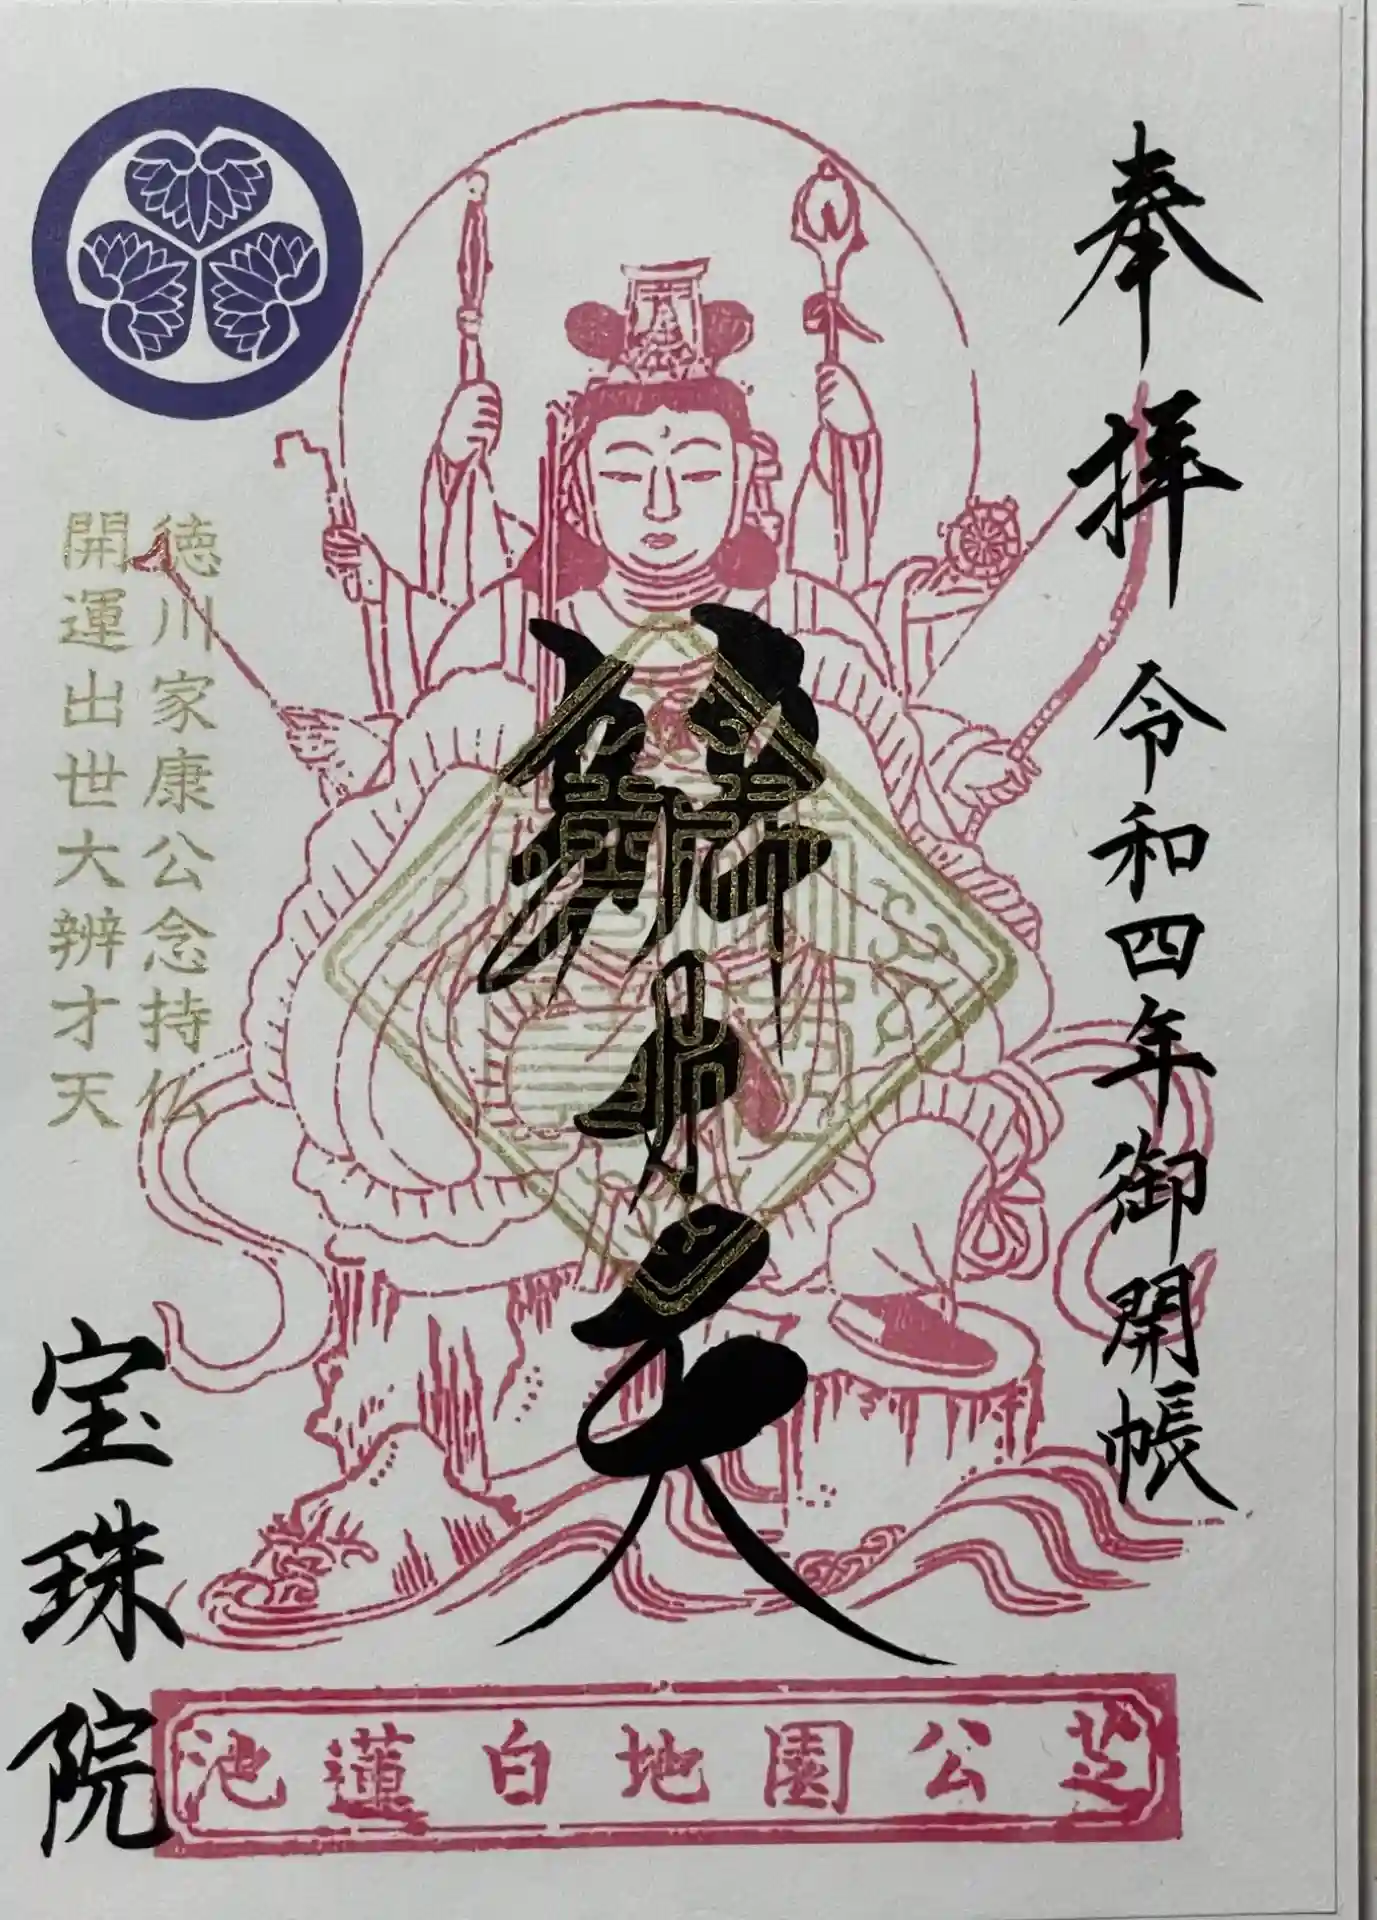 奉拝 令和四年御開帳
辨才天
徳川家康公念持仏
開運出世大辨才天
宝珠院
芝公園地白蓮池